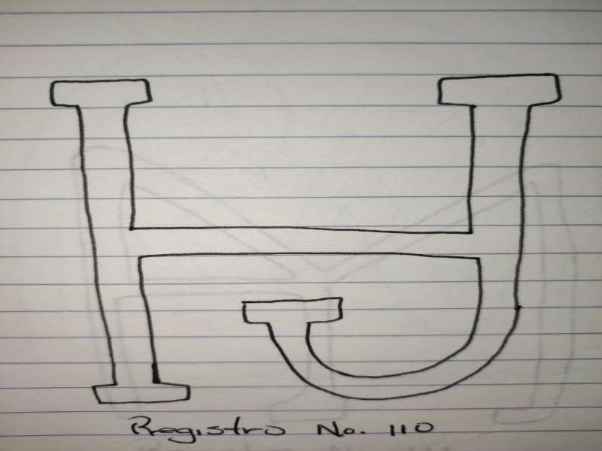 Registro No. 110